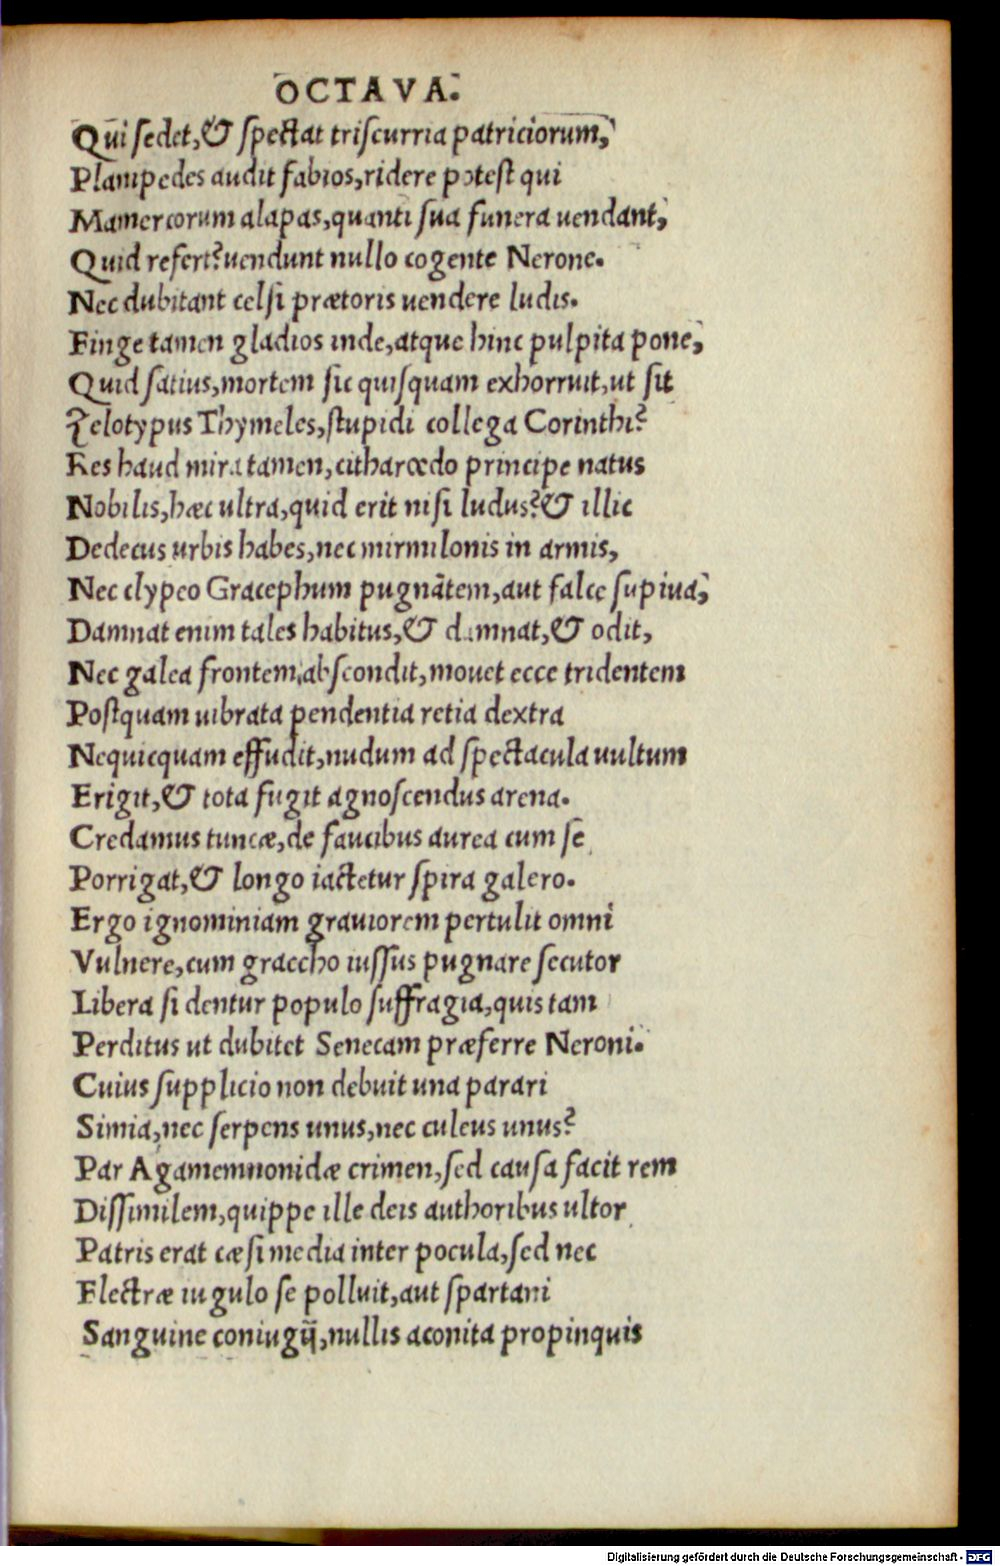 OCTAVA.
Qui sedet, & spectat triscurria patriciorum,
Plampedes audit fabios, ridere potest qui
Mamercorum alapas, quanti sua funera uendant,
Quid refert? uendunt nullo cogente Nerone.
Nec dubitant celsi prætoris uendere ludis.
Finge tamen gladios inde, atque hinc pulpita pone,
Quid satius, mortem sic quisquam exhorruit, ut sit
Zelotypus Thymeles, stupidi collega Corinthi?
Res haud mira tamen, citharœdo principe natus
Nobilis, hæc ultra, quid erit nisi ludus? & illic
Dedecus urbis habes, nec mirmilonis in armis,
Nec clypeo Gracephum pugnātem, aut falce supiua,
Damnat enim tales habitus, & damnat, & odit,
Nec galea frontem abscondit, mouet ecce tridentem
Postquam uibrata pendentia retia dextra
Nequicquam effudit, nudum ad spectacula uultum
Erigit, & tota fugit agnoscendus arena.
Credamus tuncæ, de faucibus aurea cum se
Porrigat, & longo iactetur spira galero.
Ergo ignominiam grauiorem pertulit omni
Vulnere, cum graccho iussus pugnare secutor
Libera si dentur populo suffragia, quis tam
Perditus ut dubitet Senecam præferre Neroni.
Cuius supplicio non debuit una parari
Simia, nec serpens unus, nec culeus unus?
Par Agamemnonidæ crimen, sed causa facit rem
Dissimilem, quippe ille deis authoribus ultor
Patris erat cæsi media inter pocula, sed nec
Electræ iugulo se polluit, aut spartani
Sanguine coniugij, nullis aconita propinquis
Digitalisierung gefördert durch die Deutsche Forschungsgemeinschaft - DFG